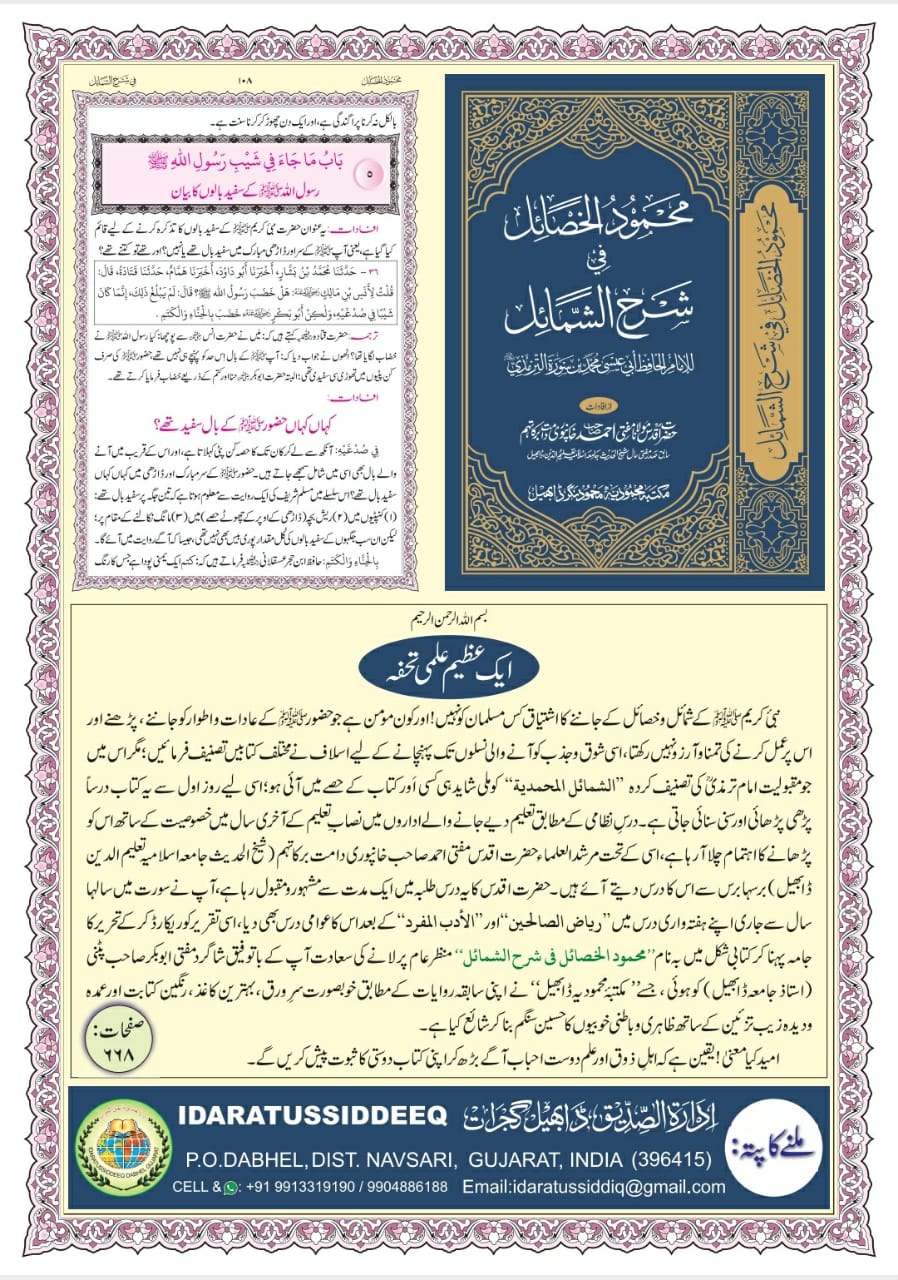 محمود الخصائل
١٠٨
في شرح الشمائل
بالکل نہ کرنا پراگندگی ہے، اور ایک دن چھوڑ کر کرنا سنت ہے۔
٥
بَابُ مَا جَاءَ فِي شَيْبِ رَسُولِ اللهِ ﷺ
رسول اللہ ﷺ کے سفید بالوں کا بیان
افادات: یہ عنوان حضرت نبیٔ کریم ﷺ کے سفید بالوں کا تذکرہ کرنے کے لیے قائم
کیا گیا ہے، یعنی آپ ﷺ کے سر اور ڈاڑھی مبارک میں سفید بال تھے یا نہیں؟ اور تھے تو کتنے تھے؟
٣٦ – حَدَّثَنَا مُحَمَّدُ بْنُ بَشَّارٍ، أَخْبَرَنَا أَبُو دَاوُدَ، أَخْبَرَنَا هَمَّامٌ، حَدَّثَنَا قَتَادَةُ، قَالَ:
قُلْتُ لِأَنَسِ بْنِ مَالِكٍ ؓ: هَلْ خَضَبَ رَسُولُ اللهِ ﷺ؟ قَالَ: لَمْ يَبْلُغْ ذَلِكَ، إِنَّمَا كَانَ
شَيْبًا فِي صُدْغَيْهِ، وَلَكِنْ أَبُو بَكْرٍ ؓ، خَضَبَ بِالْحِنَّاءِ وَالْكَتَمِ.
ترجمہ: حضرت قتادہ ؒ کہتے ہیں کہ: میں نے حضرت انس ؓ سے پوچھا: کیا رسول اللہ ﷺ نے
خضاب لگایا تھا؟ انھوں نے جواب دیا کہ: آپ ﷺ کے بال اس حد کو پہنچے ہی نہیں تھے، حضور ﷺ کی صرف
کن پٹیوں میں تھوڑی سی سفیدی تھی؛ البتہ حضرت ابوبکر ؓ حنا اور کتم کے ذریعہ خضاب فرمایا کرتے تھے۔
افادات:
کہاں کہاں حضور ﷺ کے بال سفید تھے؟
فِي صُدْغَيْهِ: آنکھ سے لے کر کان تک کا حصہ کن پٹی کہلاتا ہے، اور اس کے قریب میں آنے
والے بال بھی اسی میں شامل سمجھے جاتے ہیں۔ حضور ﷺ کے سر مبارک اور ڈاڑھی میں کہاں کہاں
سفید بال تھے؟ اس سلسلے میں مسلم شریف کی ایک روایت سے معلوم ہوتا ہے کہ تین جگہ پر سفید بال تھے:
(۱) کنپٹیوں میں (۲) ریش بچہ (ڈاڑھی کے اوپر کے چھوٹے حصے) میں (۳) مانگ نکالنے کے مقام پر؛
لیکن ان سب جگہوں کے سفید بالوں کی کل مقدار پوری بیس بھی نہیں تھی، جیسا کہ آگے روایت میں آئے گا۔
بِالْحِنَّاءِ وَالْكَتَمِ: حافظ ابن حجر عسقلانی ؒ فرماتے ہیں کہ: کتم ایک یمنی پودا ہے جس کا رنگ
محمود الخصائل
في
شرح الشمائل
للإمام الحافظ أبي عيسى محمد بن سورة الترمذي
از افادات
حضرت اقدس مولانا مفتی احمد صاحب خانپوری دامت برکاتہم
مکتبہ محمودیہ، محمود نگر، ڈابھیل
محمود الخصائل في شرح الشمائل
بسم اللہ الرحمن الرحیم
ایک عظیم علمی تحفہ
نبیٔ کریم ﷺ کے شمائل و خصائل کے جاننے کا اشتیاق کس مسلمان کو نہیں! اور کون مؤمن ہے جو حضور ﷺ کے عادات و اطوار کو جاننے، پڑھنے اور
اس پر عمل کرنے کی تمنا و آرزو نہیں رکھتا، اسی شوق و جذب کو آنے والی نسلوں تک پہنچانے کے لیے اسلاف نے مختلف کتابیں تصنیف فرمائیں؛ مگر اس میں
جو مقبولیت امام ترمذیؒ کی تصنیف کردہ ”الشمائل المحمدية“ کو ملی شاید ہی کسی اَور کتاب کے حصے میں آئی ہو؛ اسی لیے روز اول سے یہ کتاب درساً
پڑھی پڑھائی اور سنی سنائی جاتی ہے۔ درسِ نظامی کے مطابق تعلیم دیے جانے والے اداروں میں نصابِ تعلیم کے آخری سال میں خصوصیت کے ساتھ اس کو
پڑھانے کا اہتمام چلا آ رہا ہے، اسی کے تحت مرشد العلماء حضرت اقدس مفتی احمد صاحب خانپوری دامت برکاتہم (شیخ الحدیث جامعہ اسلامیہ تعلیم الدین
ڈابھیل) برسہا برس سے اس کا درس دیتے آئے ہیں۔ حضرت اقدس کا یہ درس طلبہ میں ایک مدت سے مشہور و مقبول رہا ہے، آپ نے سورت میں سالہا
سال سے جاری اپنے ہفتہ واری درس میں ”ریاض الصالحین“ اور ”الأدب المفرد“ کے بعد اس کا عوامی درس بھی دیا، اسی تقریر کو ریکارڈ کر کے تحریر کا
جامہ پہنا کر کتابی شکل میں بہ نام ”محمود الخصائل في شرح الشمائل“ منظرِ عام پر لانے کی سعادت آپ کے باتوفیق شاگرد مفتی ابوبکر صاحب پٹنی
(استاذ جامعہ ڈابھیل) کو ہوئی، جسے ”مکتبۂ محمودیہ ڈابھیل“ نے اپنی سابقہ روایات کے مطابق خوبصورت سرورق، بہترین کاغذ، رنگین کتابت اور عمدہ
و دیدہ زیب تزئین کے ساتھ ظاہری و باطنی خوبیوں کا حسین سنگم بنا کر شائع کیا ہے۔
امید کیا معنیٰ! یقین ہے کہ اہلِ ذوق اور علم دوست احباب آگے بڑھ کر اپنی کتاب دوستی کا ثبوت پیش کریں گے۔
صفحات:
٦٦٨
ملنے کا پتہ:
IDARATUSSIDDEEQ ادارۃ الصدیق، ڈابھیل گجرات
P.O.DABHEL, DIST. NAVSARI, GUJARAT, INDIA (396415)
CELL & : +91 9913319190 / 9904886188 Email:idaratussiddiq@gmail.com